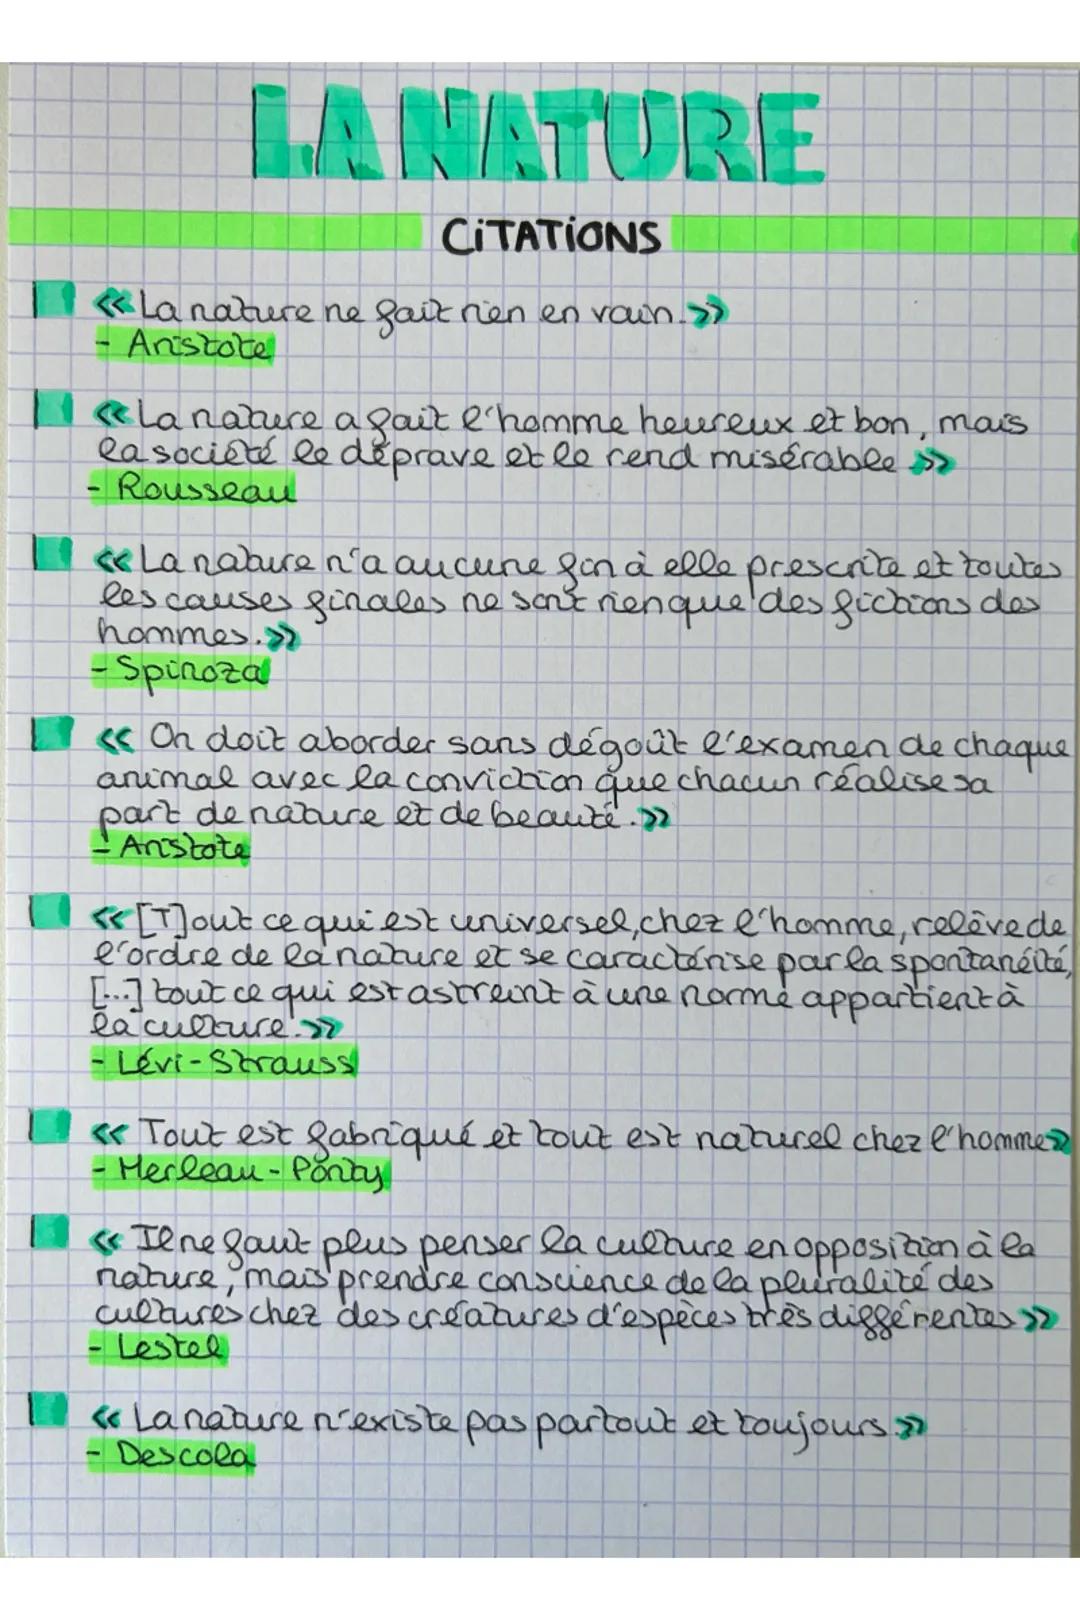 LA NATURE
CiTATiONS
« La nature ne fait rien en vain. »
- Aristote
« La nature a fait l'homme heureux et bon, mais
la société le déprave et le rend misérable »
- Rousseau
« La nature n'a aucune fin à elle prescrite et toutes
les causes finales ne sont rien que des fictions des
hommes. »
- Spinoza
« On doit aborder sans dégoût l'examen de chaque
animal avec la conviction que chacun réalise sa
part de nature et de beauté. »
- Aristote
« [T]out ce qui est universel, chez l'homme, relève de
l'ordre de la nature et se caractérise par la spontanéité,
[...] tout ce qui est astreint à une norme appartient à
la culture. »
- Lévi-Strauss
« Tout est fabriqué et tout est naturel chez l'homme »
- Merleau-Ponty
« Il ne faut plus penser la culture en opposition à la
nature, mais prendre conscience de la pluralité des
cultures chez des créatures d'espèces très différentes »
- Lestel
« La nature n'existe pas partout et toujours. »
- Descola